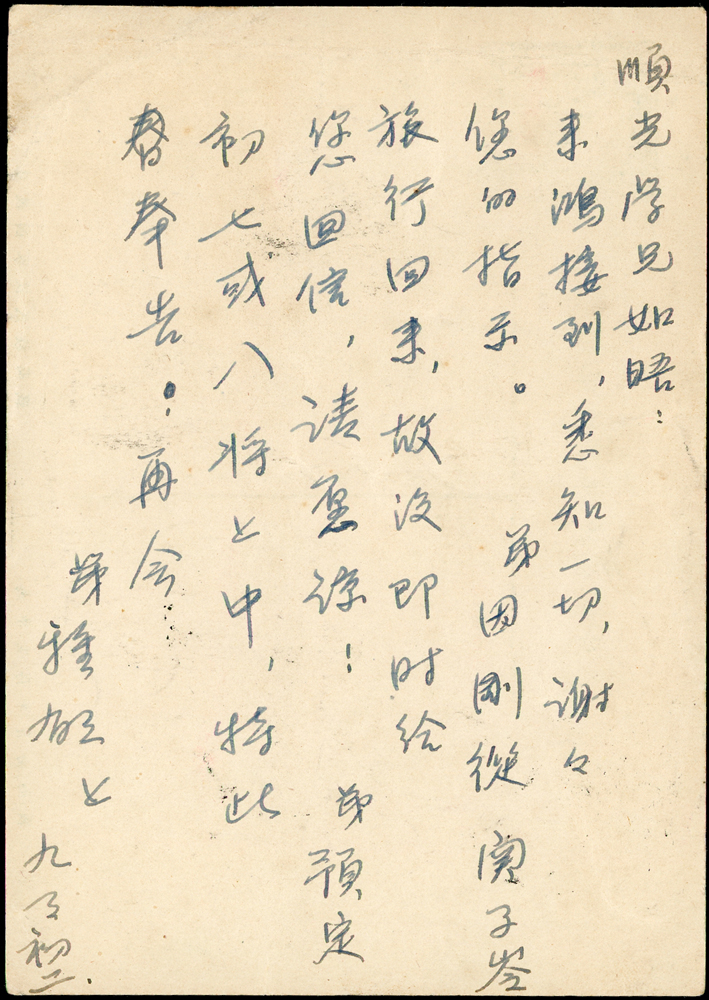 順光学兄如晤：
来鴻接到，悉知一切，谢々
您的指示。弟因刚從関子岺
旅行回来，故没即时给
您回信，请愿谅！弟预定
初七或八将上中，特此
奉告。：再会
弟雅 上 九 初二.